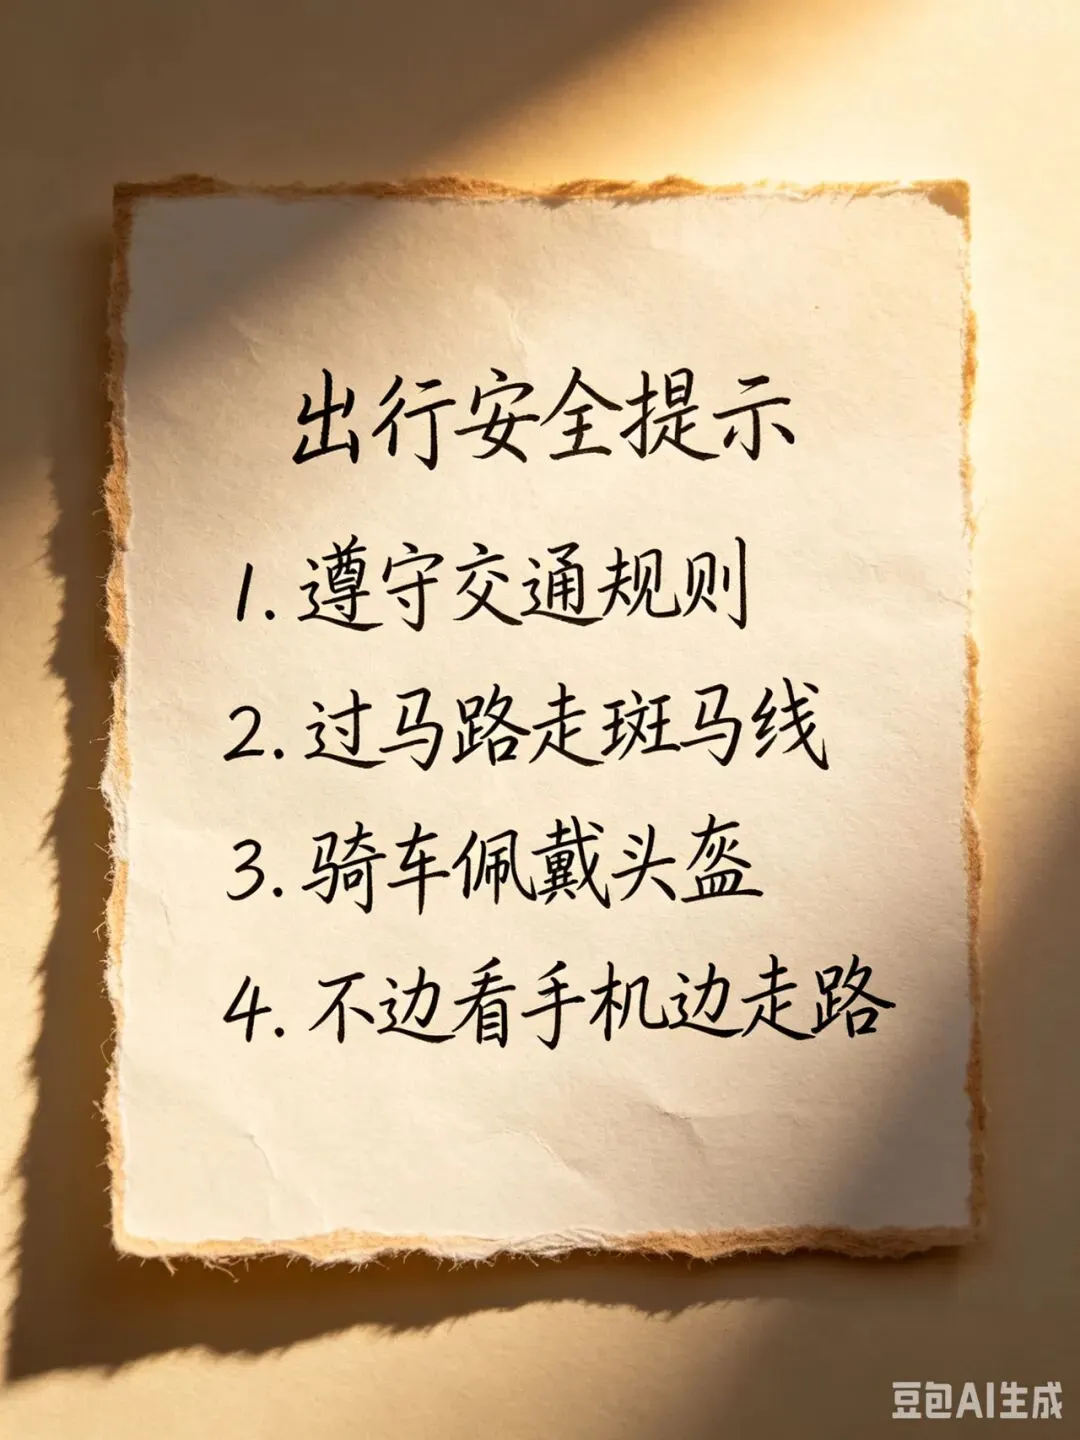 出行安全提示
1. 遵守交通规则
2. 过马路走斑马线
3. 骑车佩戴头盔
4. 不边看手机边走路
豆包AI生成